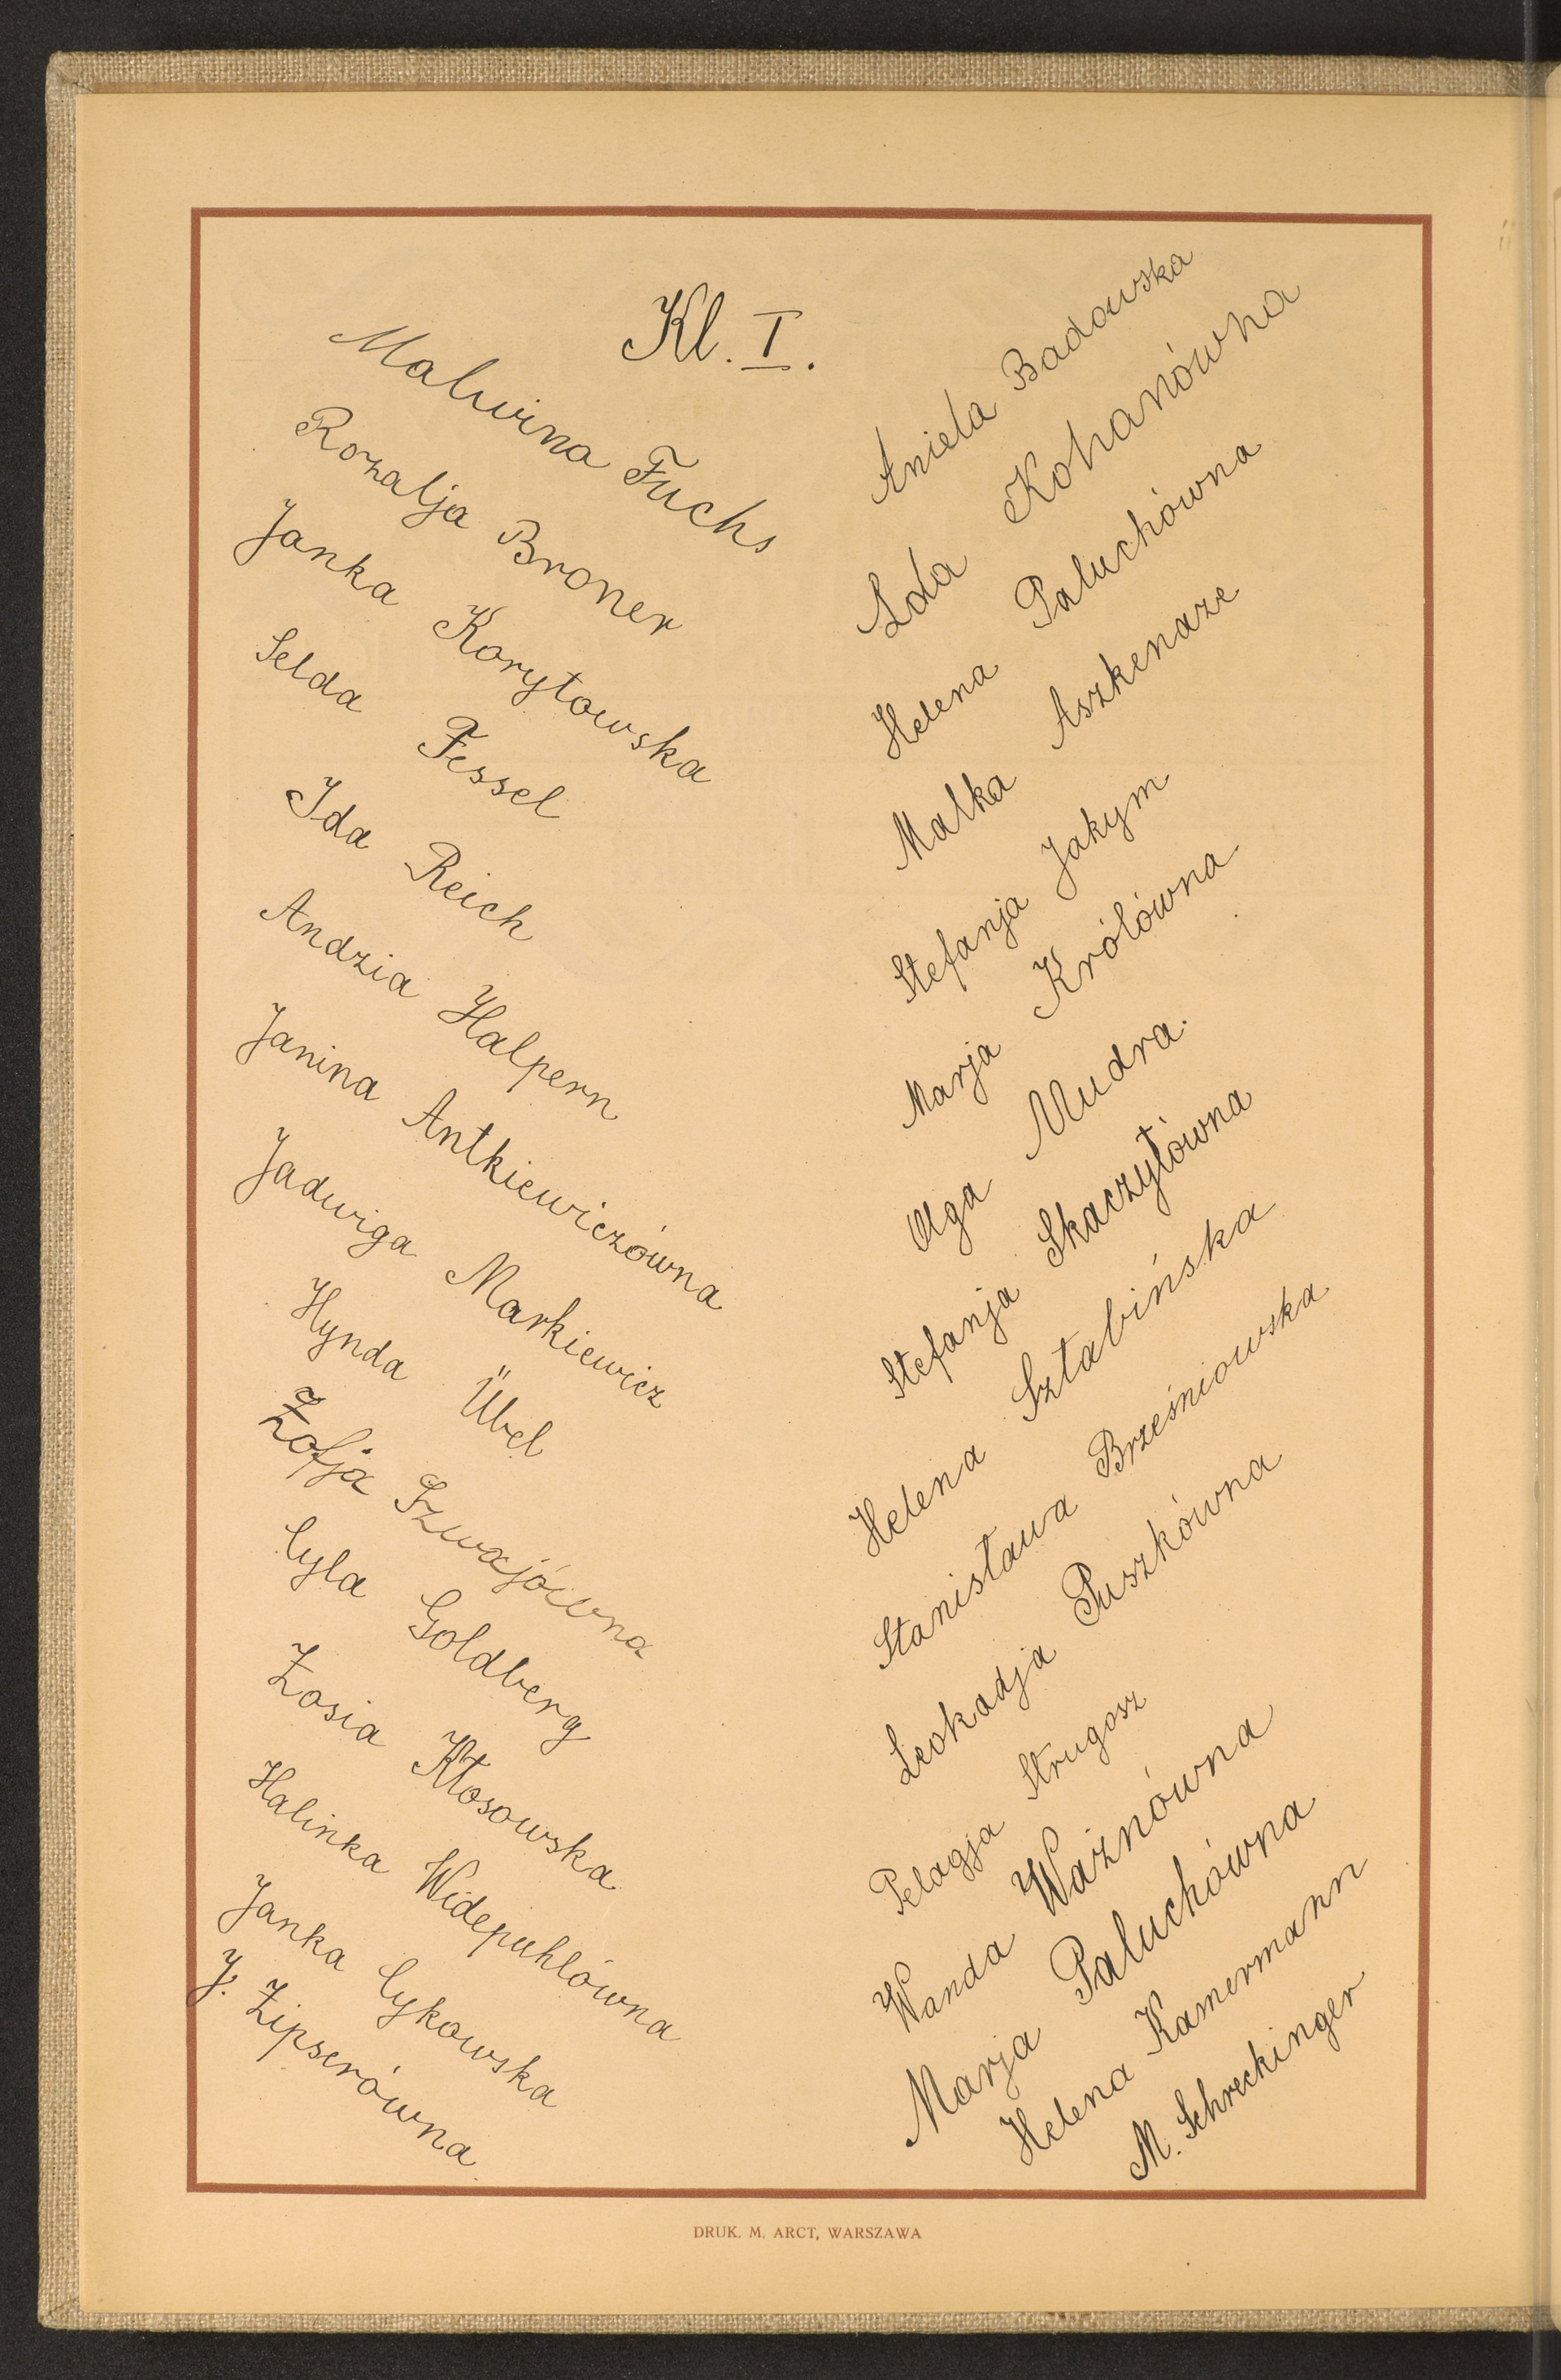 Kl. I.
Malwina Fuchs
Rozalja Broner
Janka Korytowska
Selda Fessel
Ida Reich
Andzia Halpern
Janina Antkiewiczówna
Jadwiga Markiewicz
Hynda Übel
Zofja Szwajówna
Cyla Goldberg
Zosia Kłosowska
Halinka Widepuhlówna
Janka Cykowska
J. Zipserówna
Aniela Badowska
Lola Kohanówna
Helena Paluchówna
Malka Aszkenaze
Stefanja Jakym
Marja Królówna
Olga Mudra.
Stefanja Skaczyłówna
Helena Sztabińska
Stanisława Brześniowska
Leokadja Puszkówna
Pelagja Strugosz
Wanda Ważnówna
Marja Paluchówna
Helena Kamermann
M. Schreckinger
DRUK. M. ARCT, WARSZAWA